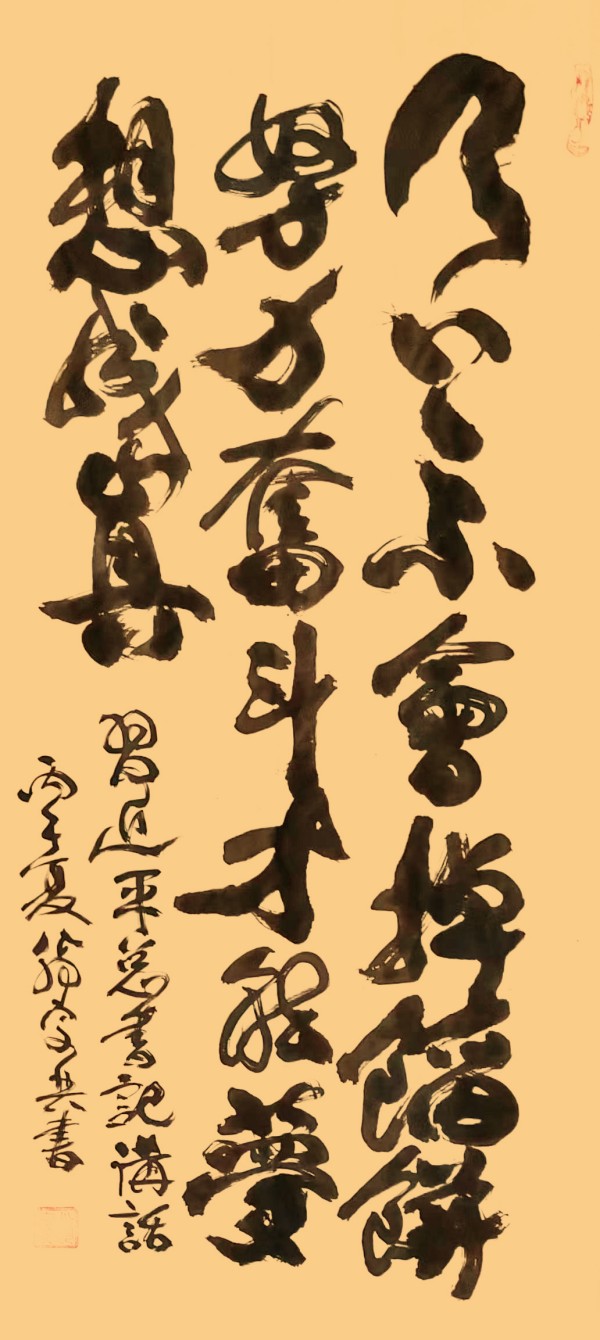 天上不會掉餡餅
努力奮斗才能夢
想成真
習近平總書記講話
丙子夏 共書